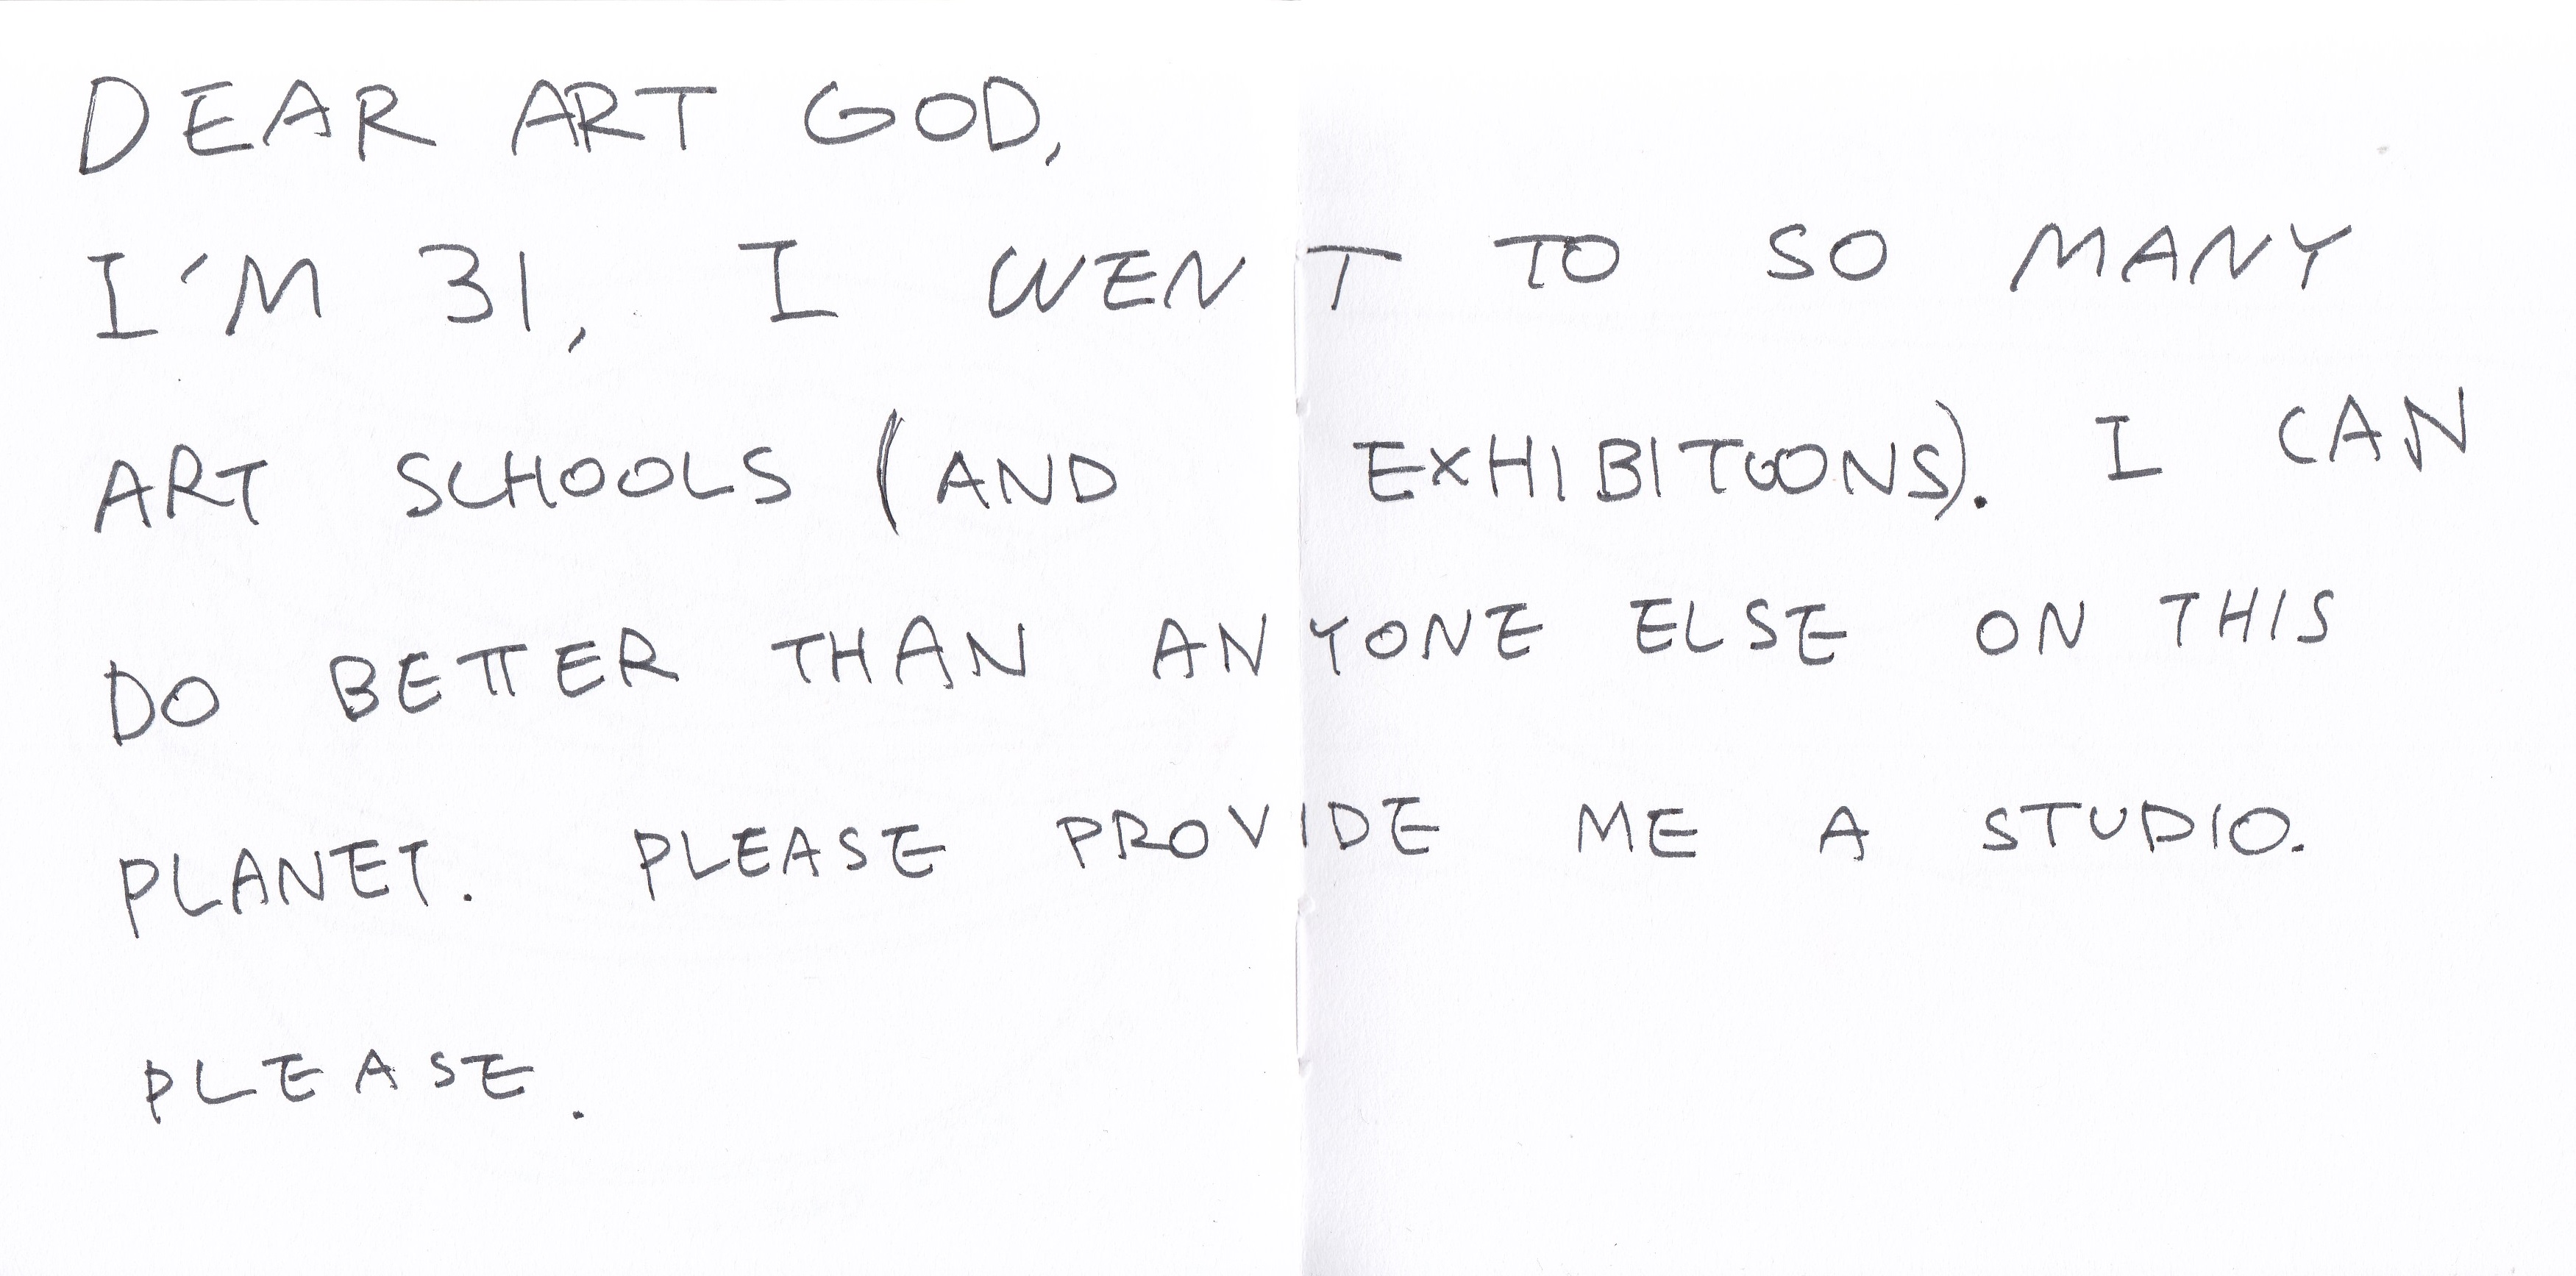 DEAR ART GOD,
I'M 31, I WENT TO SO MANY
ART SCHOOLS (AND EXHIBITOONS). I CAN
DO BETTER THAN ANYONE ELSE ON THIS
PLANET. PLEASE PROVIDE ME A STUDIO.
PLEASE.